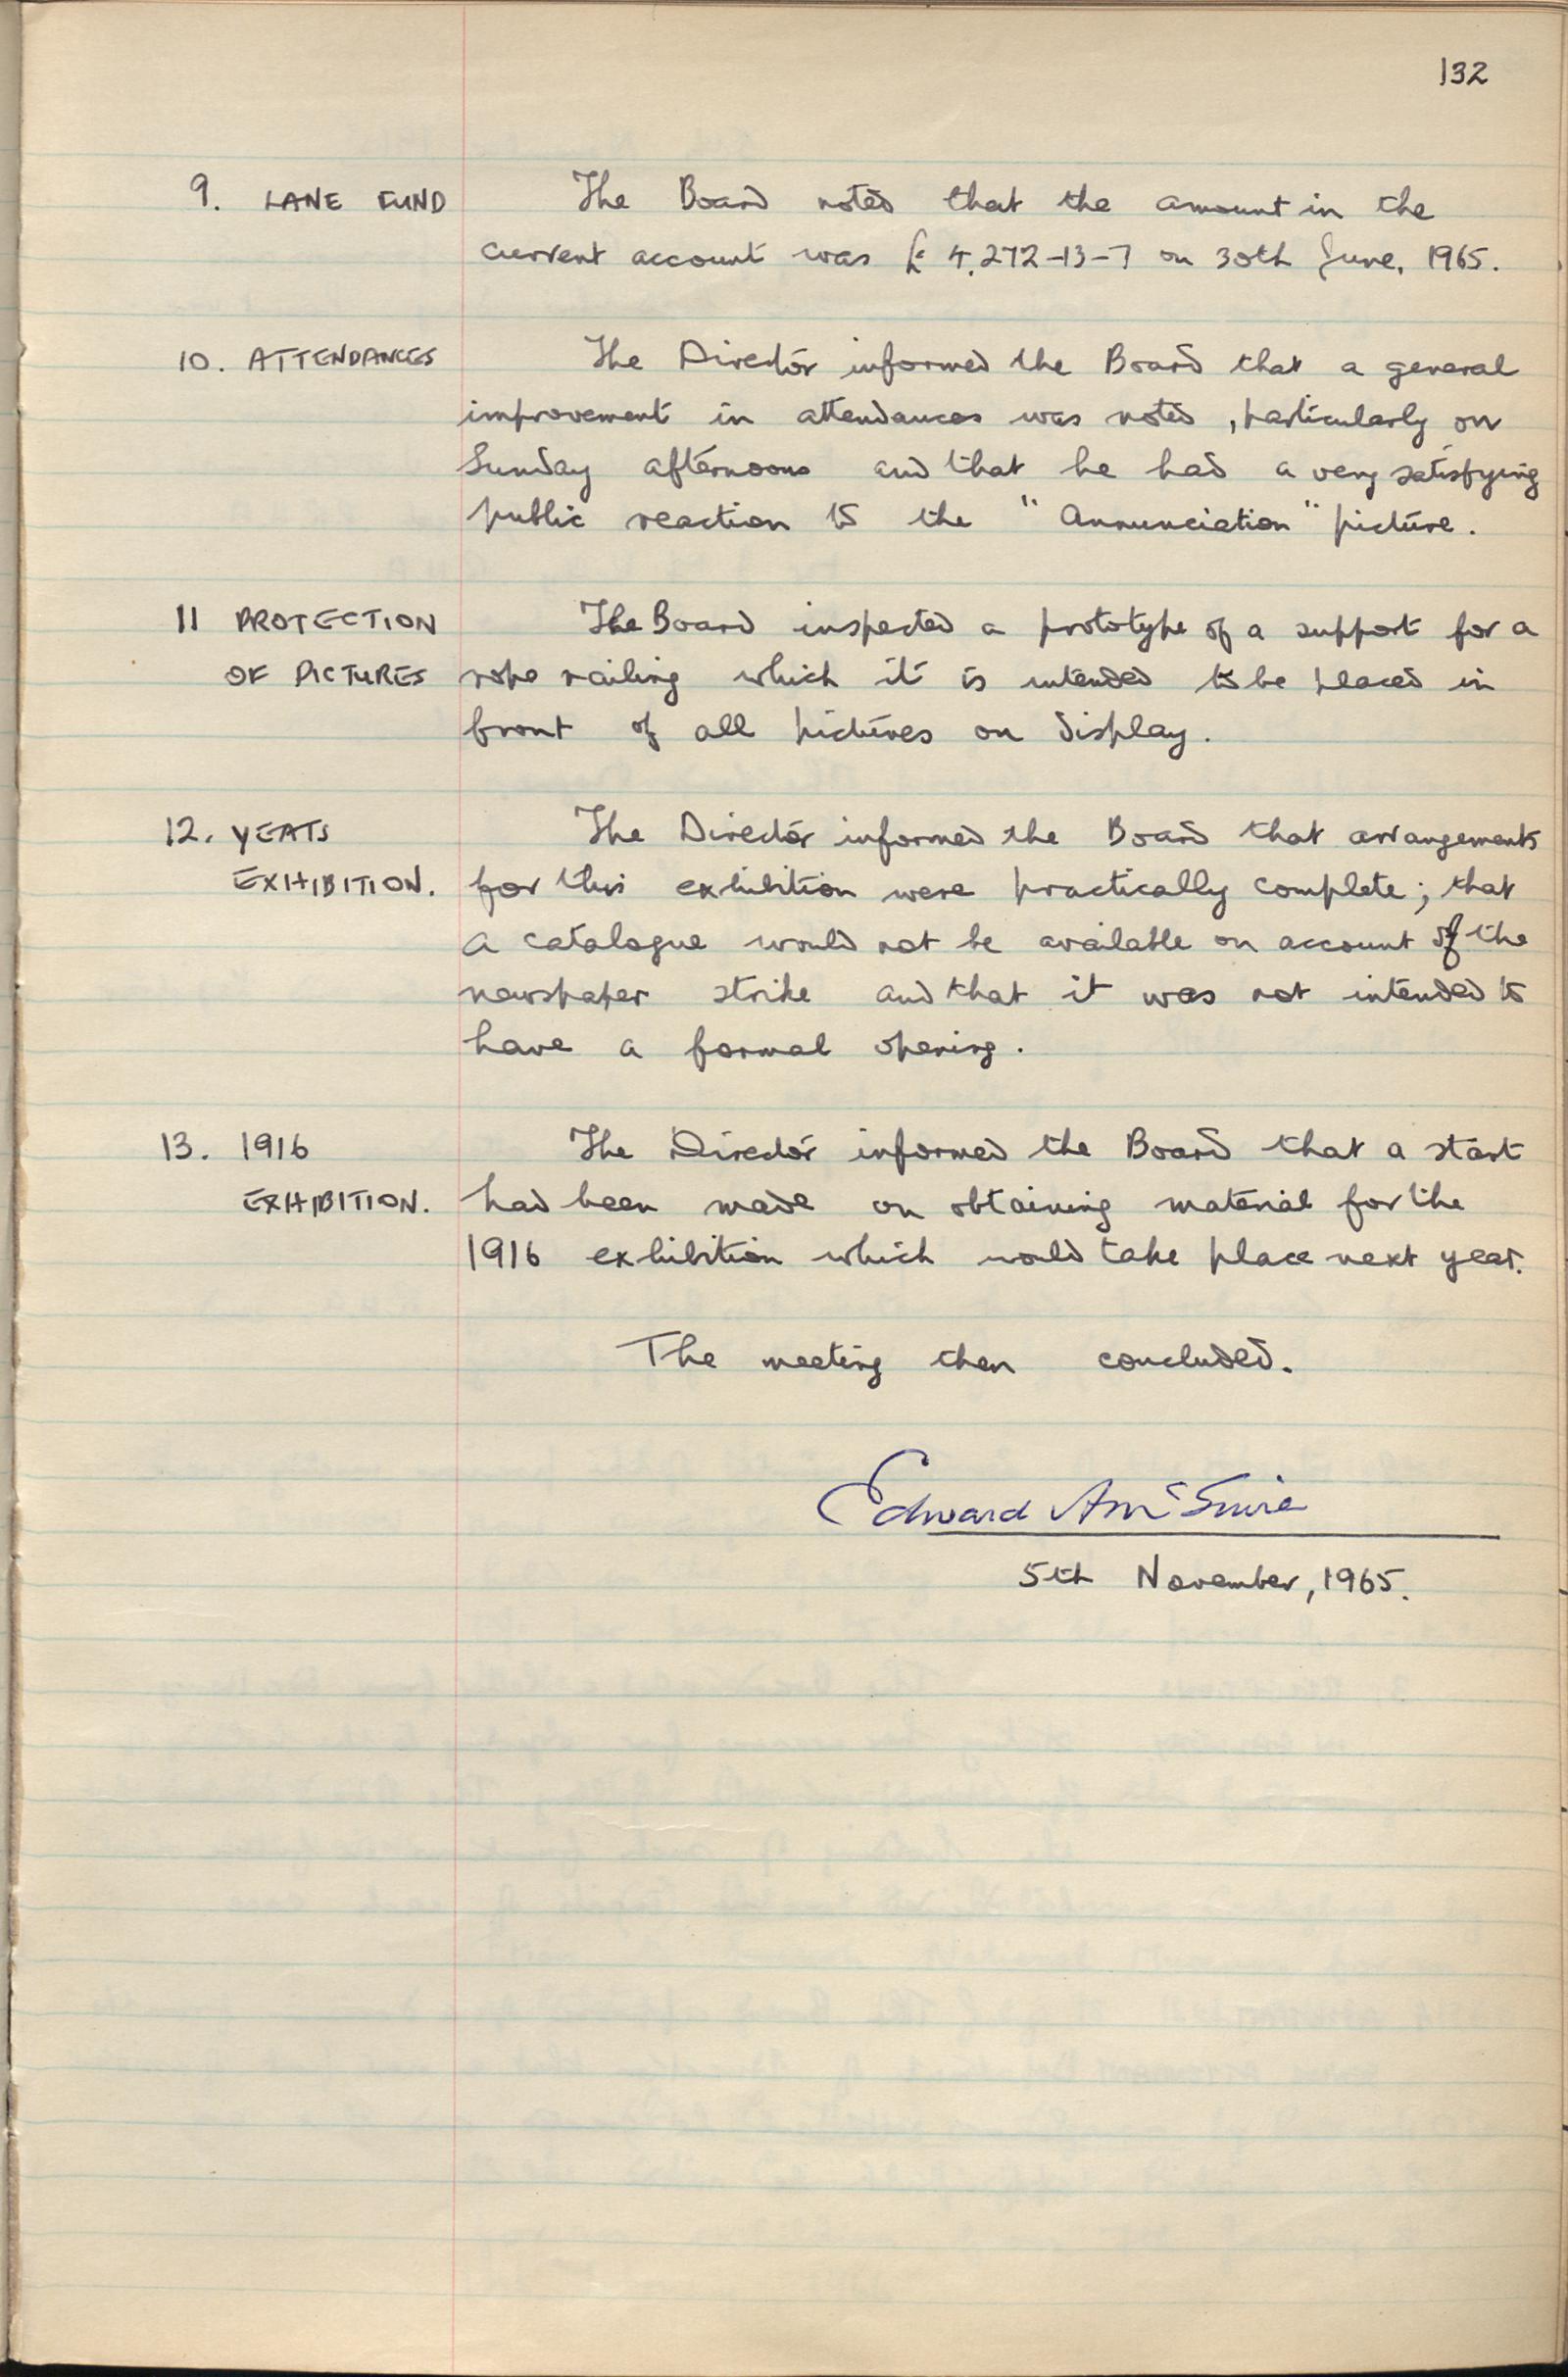 132
9. LANE FUND The Board noted that the amount in the
current account was £4,272-13-7 on 30th June, 1965.
10. ATTENDANCES The Director informed the Board that a general
improvement in attendances was noted, particularly on
Sunday afternoons and that he had a very satisfying
public reaction to the "Annunciation" picture.
11 PROTECTION The Board inspected a prototype of a support for a
OF PICTURES rope railing which it is intended to be placed in
front of all pictures on display.
12. YEATS The Director informed the Board that arrangements
EXHIBITION. for this exhibition were practically complete; that
a catalogue would not be available on account of the
newspaper strike and that it was not intended to
have a formal opening.
13. 1916 The Director informed the Board that a start
EXHIBITION. had been made on obtaining material for the
1916 exhibition which would take place next year.
The meeting then concluded.
Edward A McGuire
5th November, 1965.